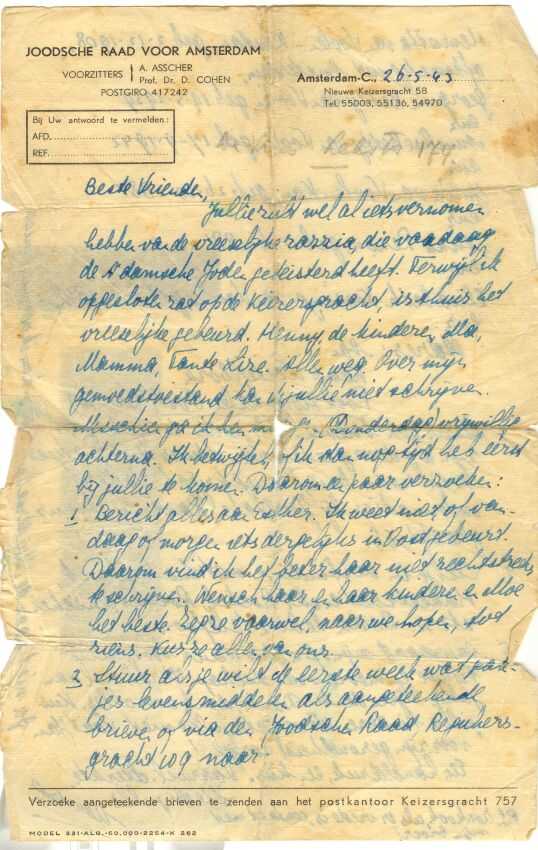 JOODSCHE RAAD VOOR AMSTERDAM
VOORZITTERS
A. ASSCHER
Prof. Dr. D. COHEN
POSTGIRO 417242
Amsterdam-C., 26-5-43
Nieuwe Keizersgracht 58
Tel. 55003, 55136, 54970
Bij Uw antwoord te vermelden:
AFD.
REF.
Beste Vrienden,
Jullie zult wel al iets vernomen
hebben van de vreeselijke razzia, die vandaag
de A'damsche Joden geteisterd heeft. Terwijl ik
opgesloten zat op de Keizersgracht, is thuis het
vreeselijke gebeurd. Henny, de kinderen, Ma,
Mamma, Tante Lize. Allen weg. Over mijn
gemoedstoestand kan ik jullie niet schrijven.
Misschien ga ik hen Donderdag vrijwillig
achterna. Ik betwijfel, of ik dan nog tijd heb eerst
bij jullie te komen. Daarom een paar verzoeken:
1. Bericht alles aan Esther. Ik weet niet of van-
daag of morgen iets dergelijks in Oost gebeurt.
Daarom vind ik het beter haar niet rechtstreeks
te schrijven. Wensch haar en haar kinderen en Moe
het beste. Zegge vaarwel, naar we hopen, tot
ziens. Kus ze allen van ons.
2. Stuur als je wilt de eerste week wat pak-
jes levensmiddelen als aangeteekende
brieven of via den Joodschen Raad Reguliers-
gracht 109 naar:
Verzoeke aangeteekende brieven te zenden aan het postkantoor Keizersgracht 757
MODEL 331-ALG.-50.000-2254-K 262